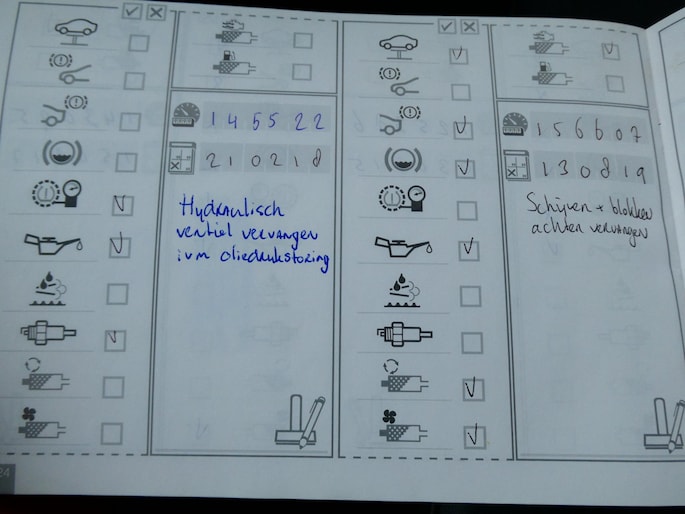 145522
210218
Hydraulisch
ventiel vervangen
ivm oliedrukstoring
156607
130819
Schijven + blokken
achter vervangen
24